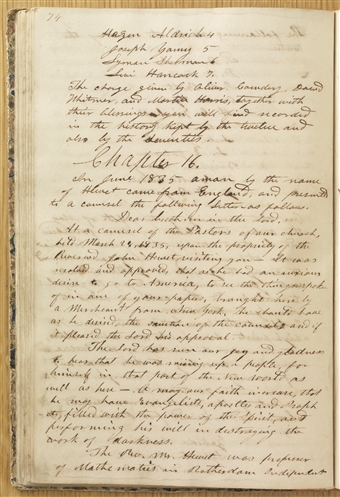 74
Hazen Aldrich 4
Joseph Young 5
Lyman Sherman 6
Levi Hancock 7.
The charge given by Oliver Cowdery, David
Whitmer, and Martin Harris, together with
their blessings you will find recorded
in the history kept by the twelve and
also by the Seventies.
Chapter 16.
In June 1835 a man by the name
of Hewet came from England, and presented
to a counsel the following letter as follows.
Dear brethren in the Lord,
At a counsel of the Pastors of our church,
held March 28, 1835, upon the propriety of the
Reverend John Hewet, visiting you — It was
resolved and approved, that as he had an anxious
desire to go to America, to see the things spoken
of in one of your papers, brought here by
a Merchant from New York, he should have
as he desired, the sanction of the counsel, and if
it pleased the Lord his approval.
The Lord has seen our joy and gladness
to hear that he was raising up a people, for
himself in that part of the New World as
well as here — O, may our faith increase, that
he may have Evangelists, apostles and Prophets
filled with the power of the Spirit, and
performing his will in destroying the
work of darkness.
The Rev. Mr. Hewet was professor
of Mathematics in Rotherdam Independent